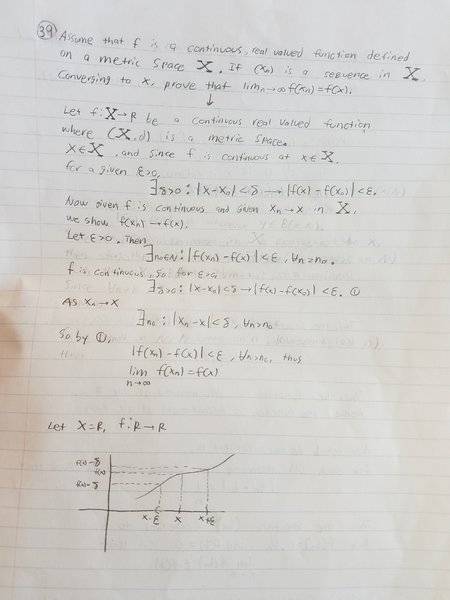 39 Assume that f is a continuous, real valued function defined
on a metric space X. If (xn) is a sequence in X,
Converging to x, prove that limn→∞ f(xn)=f(x).
↓
Let f:X→R be a continuous real valued function
where (X,d) is a metric space.
x∈X, and since f is continuous at x∈X.
for a given ε>0,
∃δ>0 : |x-x0|<δ → |f(x)-f(x0)|<ε.
Now given f is continuous and given xn→x in X,
we show f(xn)→f(x).
Let ε>0. Then
∃n0∈N : |f(xn)-f(x)|<ε, ∀n≥n0.
f is continuous, so for ε>0,
∃δ>0 : |x-x0|<δ → |f(x)-f(x0)|<ε. ①
As xn→x
∃n0 : |xn-x|<δ, ∀n>n0
So by ①,
|f(xn)-f(x)|<ε, ∀n>n0, thus
lim f(xn)=f(x)
n→∞
Let X=R, f:R→R
f(x)-δ
f(x)
f(x)-δ
x-ε x x+ε